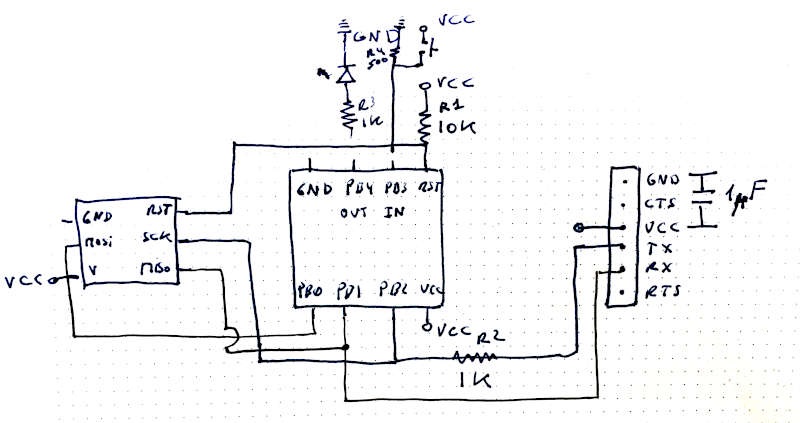 VCC
GND
R4
500
VCC
R3
1K
R1
10K
GND PB4 PB3 RST
OUT IN
GND RST
MOSi SCK
V MISO
VCC
PB0 PB1 PB2 VCC
VCC
R2
1K
GND
CTS
VCC
TX
RX
RTS
1µF